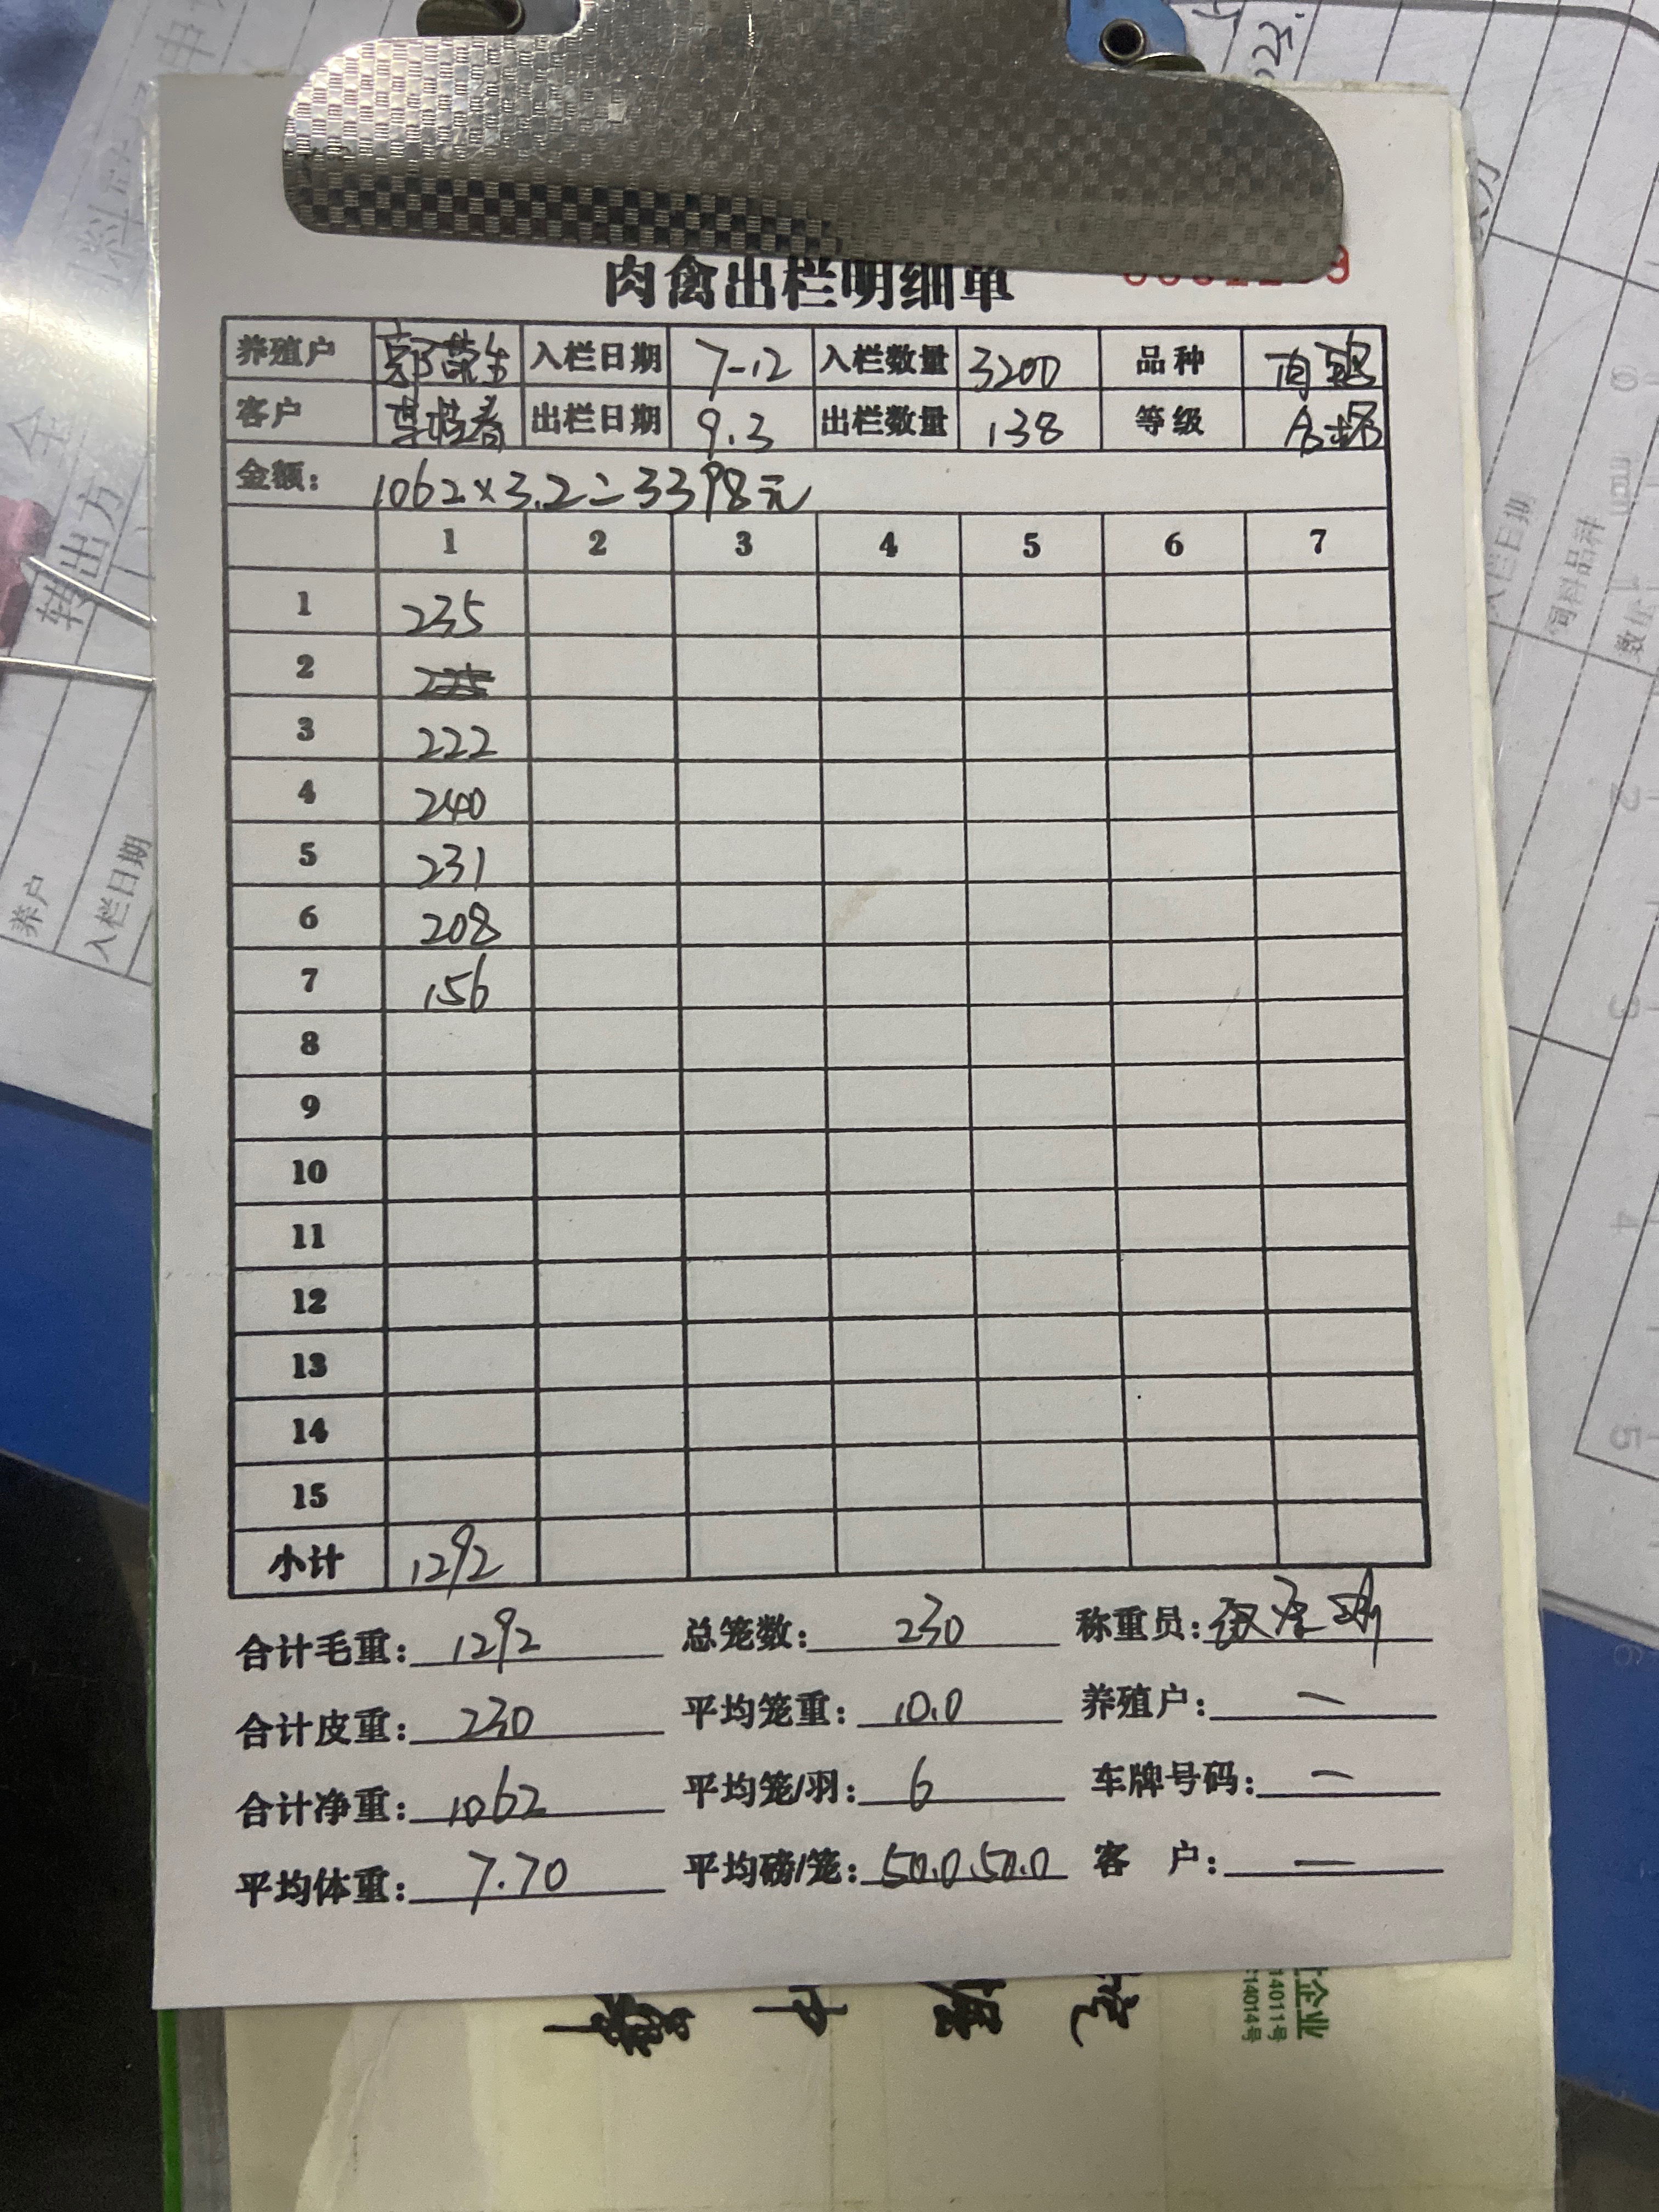 肉禽出栏明细单
养殖户 郭荣生 入栏日期 7-12 入栏数量 3200 品种 肉鸡
客户 出栏日期 9.3 出栏数量 138 等级 合格
金额： 1062×3.2=3398元
1 2 3 4 5 6 7
1 235
2 225
3 222
4 240
5 231
6 208
7 156
8
9
10
11
12
13
14
15
小计 1292
合计毛重： 1292 总笼数： 230 称重员：
合计皮重： 230 平均笼重： 10.0 养殖户： —
合计净重： 1062 平均笼/羽： 6 车牌号码： —
平均体重： 7.70 平均磅/笼： 50.0 50.0 客 户： —
转出方
养户
入栏日期
饲料品种
企业